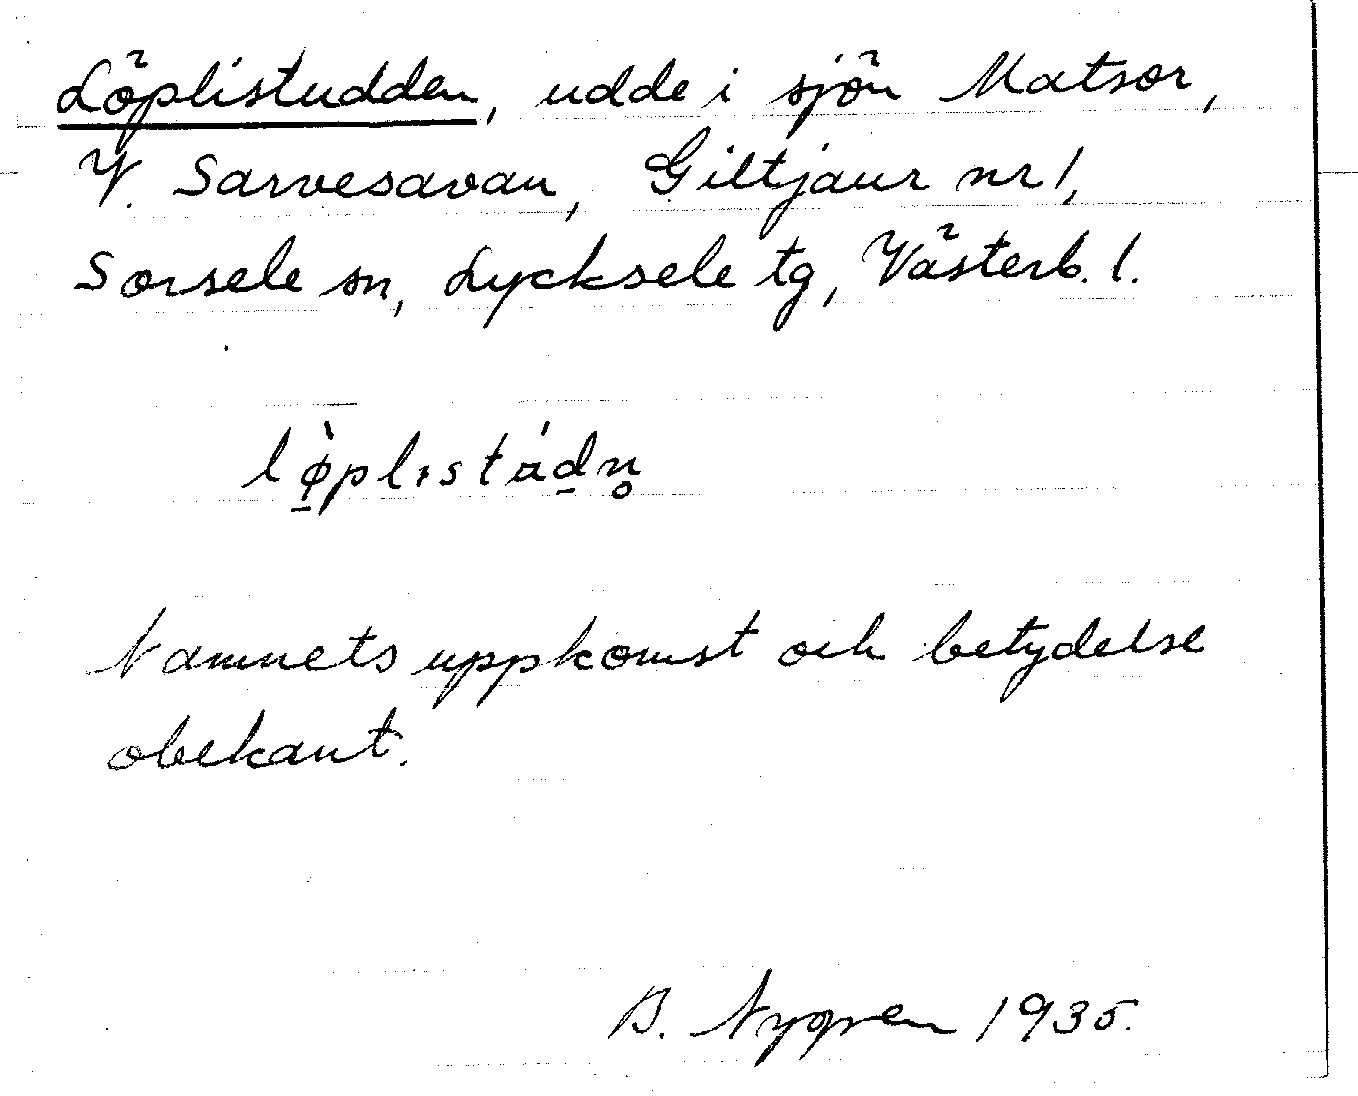 Löplistudden, udde i sjön Matsor,
V. Sarvesavan, Giltjaur nr 1,
Sorsele sn, Lycksele tg, Västerb. l.
lø̱̀plıstád̠n̥
Namnets uppkomst och betydelse
obekant.
B. Nygren 1935.